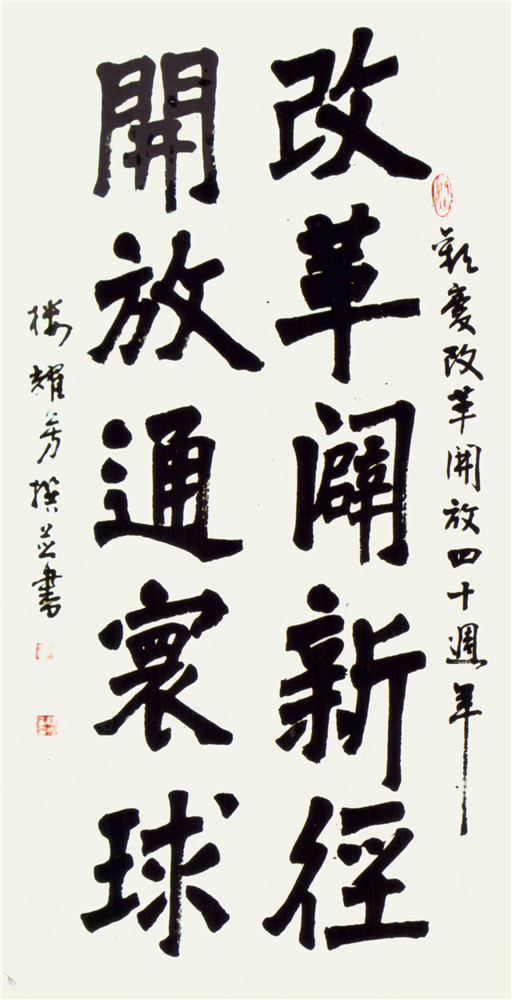 歡慶改革開放四十週年
改革闢新徑
開放通寰球
樓耀芳撰並書